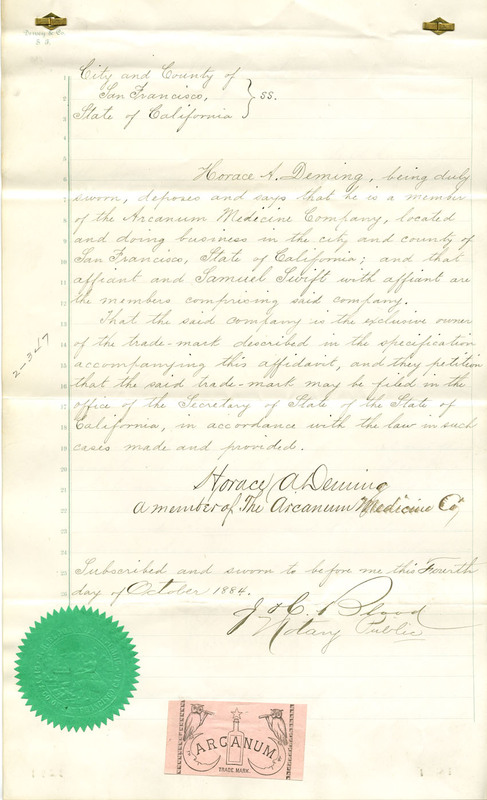 City and County of
San Francisco, } ss.
State of California
Horace A. Deming, being duly
sworn, deposes and says that he is a member
of the Arcanum Medicine Company, located
and doing business in the city and county of
San Francisco, State of California; and that
affiant and Samuel Swift with affiant are
the members comprising said company.
That the said company is the exclusive owner
of the trade-mark described in the specification
accompanying this affidavit, and they petition
that the said trade-mark may be filed in the
office of the Secretary of State of the State of
California, in accordance with the law in such
cases made and provided.
Horace A. Deming
a member of The Arcanum Medicine Co,
Subscribed and sworn to before me this Fourth
day of October 1884.
Blood
Notary Public
2-347
ARCANUM
TRADE MARK.